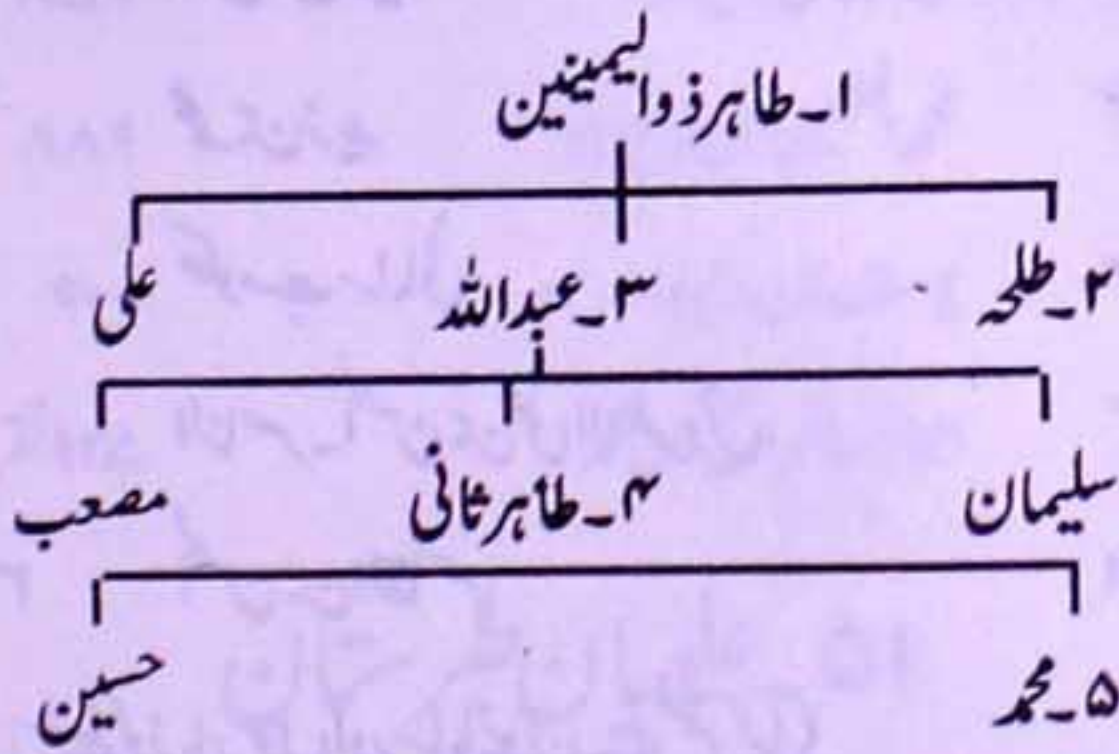 ۱۔ طاہر ذوالیمینین
۲۔ طلحہ ۳۔ عبداللہ علی
سلیمان ۴۔ طاہر ثانی مصعب
۵۔ محمد حسین